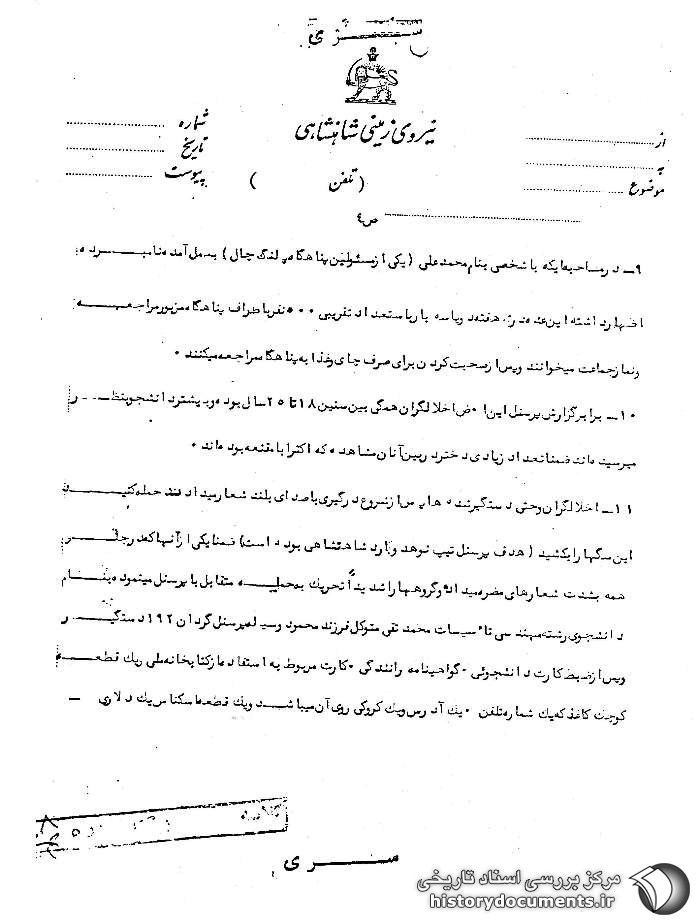 سری
نیروی زمینی شاهنشاهی
از
به
موضوع
شماره
تاریخ
پیوست
(تلفن )
ص٤
۹ـ در مصاحبه ایکه با شخصی بنام محمدعلی (یکی از مسئولین پناهگاه پلنگ چال) بعمل آمده نامبرده
اظهار داشته این عده در هفته دو یا سه بار با استعداد تقریبی ۵۰۰ نفر باطراف پناهگاه مزبور مراجعه
و نماز جماعت میخوانند و پس از صحبت کردن برای صرف چای و غذا به پناهگاه مراجعه میکنند ۰
۱۰ـ برابر گزارش پرسنل این اخلالگران همگی بین سنین ۱۸ تا ۲۵ سال بوده و بیشتر دانشجو بنظر
میرسیده اند ضمنا تعداد زیادی دختر در بین آنان مشاهده که اکثرا با مقنعه بوده اند ۰
۱۱ـ اخلالگران و حتی دستگیرشده ها پس از شروع درگیری با صدای بلند شعار میدادند حمله کنید
این سگها را بکشید (هدف پرسنل تیپ نوهد و گارد شاهنشاهی بوده است) ضمنا یکی از آنها که در جلو
همه بشدت شعارهای مضره میداد و گروهها را شدیداً تحریک به حمله متقابل با پرسنل مینمود بنام
دانشجوی رشته مهندسی تاسیسات محمد تقی متوکل فرزند محمود وسیله پرسنل گردان ۱۹۲ دستگیر
و پس از ضبط کارت دانشجوئی ۰ گواهینامه رانندگی ۰ کارت مربوط به استفاده از کتابخانه ملی و یک قطعه
کوچک کاغذ که یک شماره تلفن ۰ یک آدرس و یک کروکی روی آن میباشد و یک قطعه اسکناس یک دلاری ـ
سری
مرکز بررسی اسناد تاریخی
historydocuments.ir